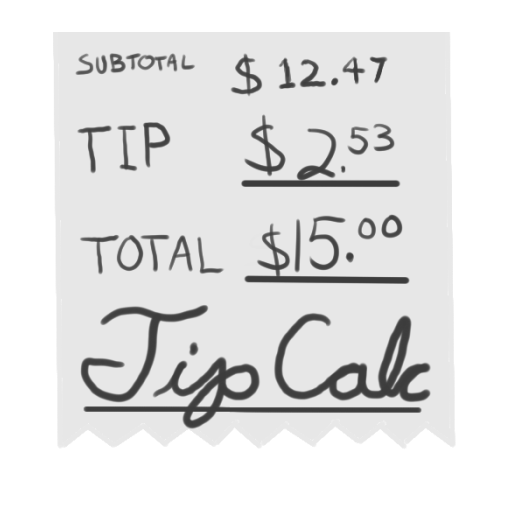 SUBTOTAL $ 12.47
TIP $2.53
TOTAL $15.00
Tip Calc